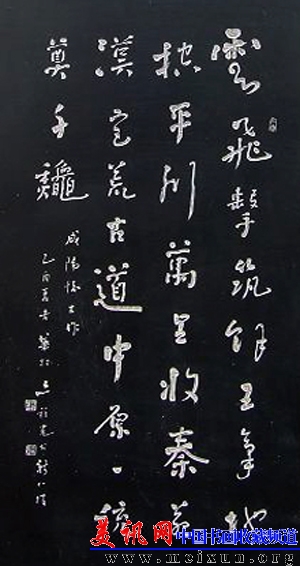 雲飛擊筑餘王氣地
控平川萬里收秦苑
漢宮荒古道中原一統
奠千龝
咸陽懷古作
乙酉夏
美讯网 中国书画收藏频道
www.meixun.org